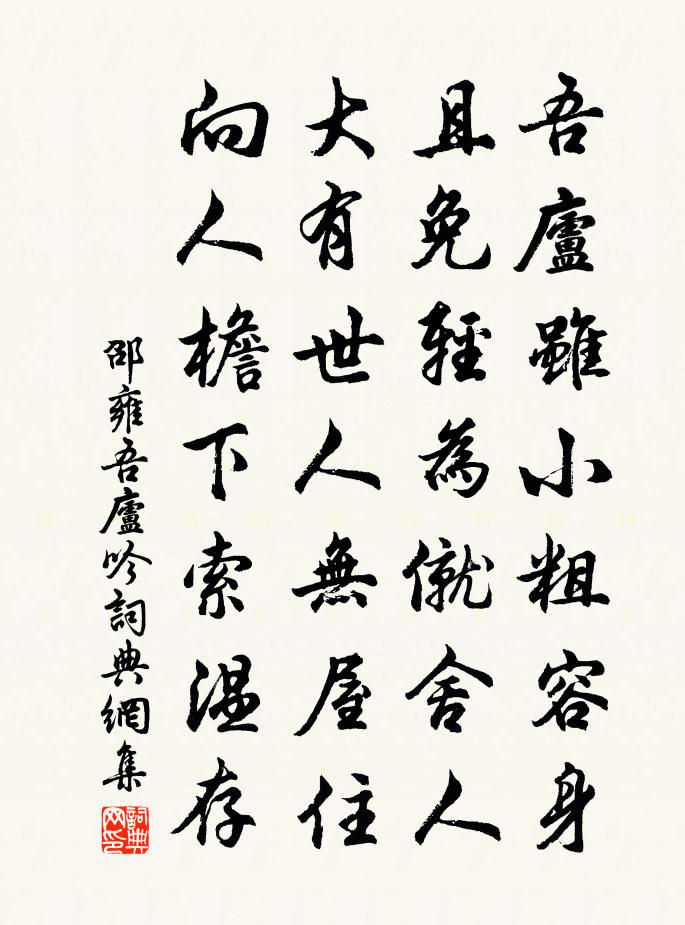 吾廬雖小粗容身
且免輕為僦舍人
大有世人無屋住
向人檐下索溫存
邵雍吾廬吟詞典網集
詞典网印